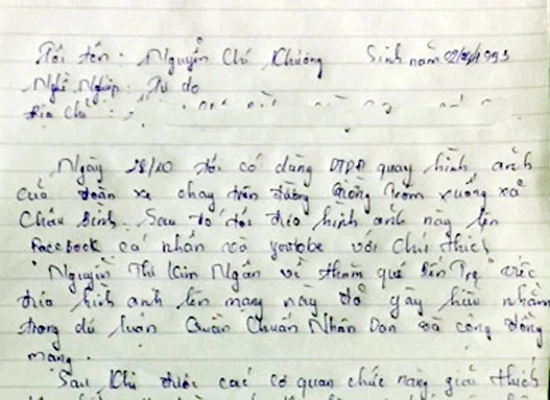 Tôi tên: Nguyễn Chí Khương Sinh năm 02/8/1993
Nghề Nghiệp: Tự do
Địa chỉ:
Ngày 28/10 tôi có dùng ĐTDĐ quay hình ảnh
của đoàn xe chạy trên đường Giồng Trôm xuống xã
Châu Bình. Sau đó tôi đưa hình ảnh này lên
Facebook cá nhân và youtobe với chú thích
"Nguyễn Thị Kim Ngân về thăm quê Bến Tre" việc
đưa hình ảnh lên mạng này đã gây hiểu nhầm
trong dư luận Quần Chúng Nhân Dân và cộng đồng
mạng.
Sau khi được các cơ quan chức năng giải thích